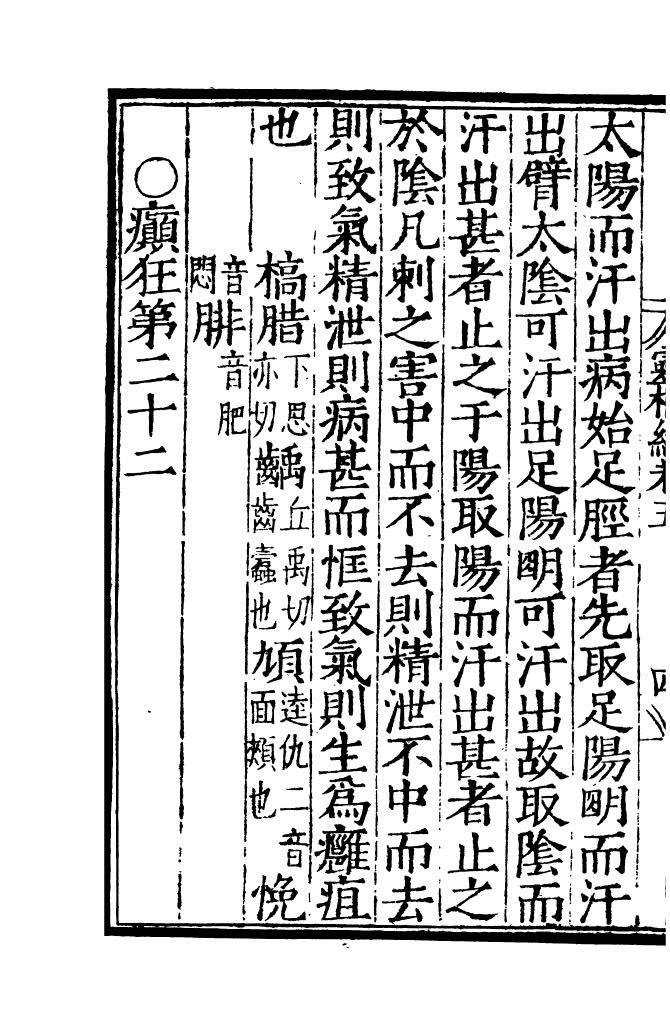 太陽而汗出病始足脛者先取足陽明而汗
出臂太陰可汗出足陽明可汗出故取陰而
汗出甚者止之于陽取陽而汗出甚者止之
於陰凡刺之害中而不去則精泄不中而去
則致氣精泄則病甚而恇致氣則生爲癰疽
也
槁腊下思亦切齲丘禹切齒齒蠹也頄逵仇二音面頰也悗
音悶腓音肥
○癲狂第二十二